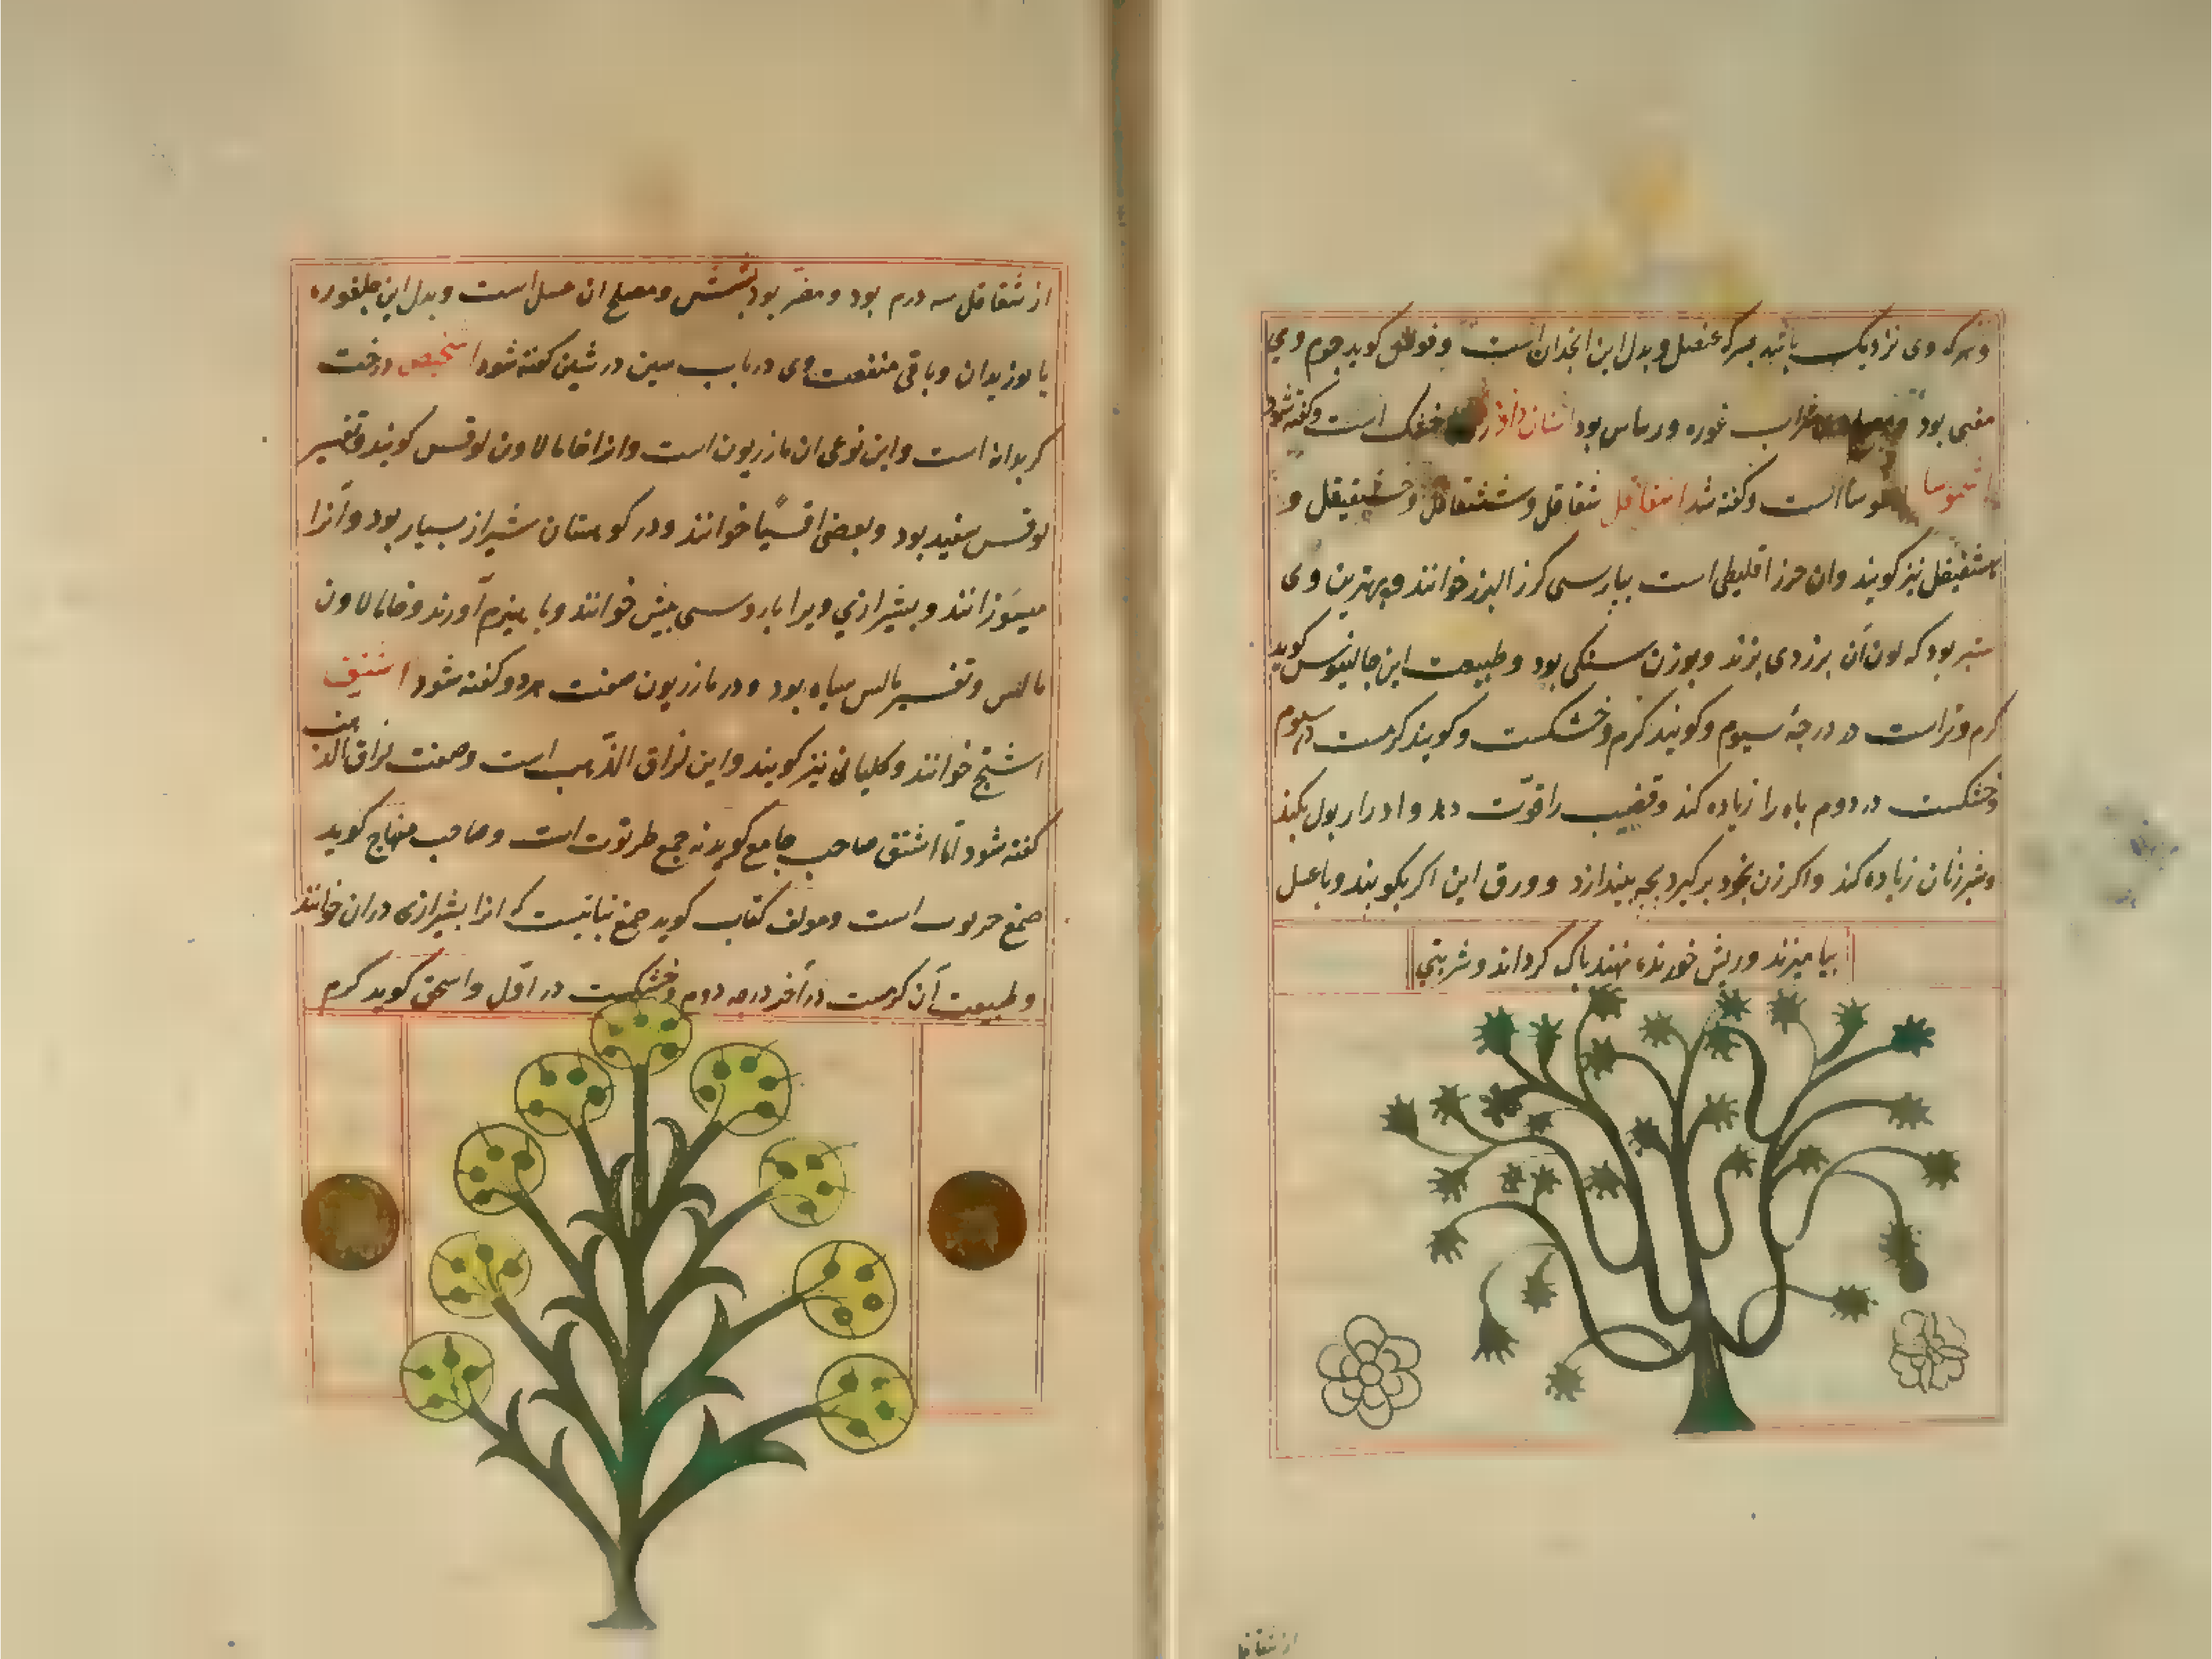 و سرکه وی نزدیک باشد بسرکه عنصل و بدل این انجدان است و فولس کوید جوم وی
مغبی بود شراب غوره و ریباس بود اسنان داود خشک است و کفته شود
اشموسا است و کفته شد اشقاقل شقاقل و ششقاقل و خشیقیقل و
شقیقل نیز کویند و ان حرز اقلیطی است بپارسی کرز البرز خوانند و بهترین وی
ستبر بود که لون آن بزردی بزند و بوزن سنکی بود و طبیعت این جالینوس کوید
کرم و تر است در درجهٔ سیوم و کویند کرم و خشکست و کویند کرمست در سیوم
و خشکست در دوم باه را زیاده کند و قضیب را قوّت دهد و ادرار بول بکند
و شیر زنان زیاده کند و اکر زن بخود بر کیرد بچه بیندازد و ورق این اکر بکوبند و با عسل
بیامیزند و ریش خورنده نهند پاک کرداند و شربتی
از شقاقل
از شقاقل سه درم بود و مضرّ بود بشش و مصلح ان عسل است و بدل این جلغوزه
یا بوزیدان و باقی منفعت وی در باب سین در شین کفته شود اشخیص درخت
کربوانه است و این نوعی از مازریون است و انرا خامالاون لوقس کویند و تفسیر
لوقس سفید بود و بعضی اقسیّا خوانند و در کوهستان شیراز بسیار بود و آنرا
میسوزانند و بشیرازی ویرا بارد سمی بیش خوانند و با هیزم آورند و خامالاون
مالس و تفسیر مالس سیاه بود و در مازریون صفت هر دو کفته شود اشنق
اشج خوانند و کلیانی نیز کویند و این لزاق الذّهب است و صفت لزاق الذهب
کفته شود امّا اشنق صاحب جامع کوید نه صمغ طرثوث است و صاحب منهاج کوید
صمغ طرثوث است و مولف کتاب کوید صمغ نباتیست که انرا بشیرازی دران خوانند
و طبیعت آن کرمست در آخر درجه دوم و خشکست در اوّل و اسحق کوید کرم